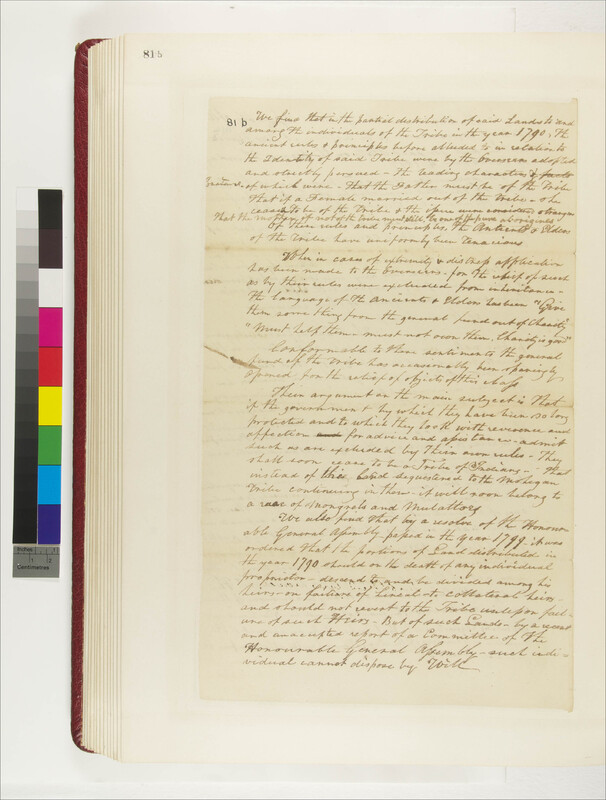 81b
81 b
We find that in the partial distribution of said Lands to and
among the individuals of the Tribe in the year 1790, the
ancient rules & principles before alluded to in relation to
the Identity of said Tribe were by the Overseers adopted
and strictly pursued – the leading characteristic
of which were – That the Father must be of the Tribe
That if a Female married out of the Tribe – she
ceased to be of the Tribe & the issue were considered strangers
That the mother, if not of the Tribe must still be one of the pure aborigines
Of these rules and principles, the Antients & Elders
of the Tribe have uniformly been tenacious
When in cases of extremity & distress application
has been made to the Overseers, for the relief of such
as by their rules were excluded from inheritance –
the language of the Ancients & Elders has been "Give
them something from the general fund out of Charity"
"Must help them – must not own them, Charity is good"
Conformable to these sentiments the general
fund of the Tribe has occasionally been sparingly
opened, for the relief of objects of this class
Their argument on the main subject is that
if the government by which they have been so long
protected and to which they look with reverence and
affection for advice and assistance – admit
such as are excluded by their own rules – They
shall soon cease to be a Tribe of Indians – That
instead of this Land sequestered to the Mohegan
Tribe continuing in them – it will soon belong to
a race of Mongrels and Mulattoes
We also find that by a resolve of the Honour-
able General Assembly passed in the year 1799 it was
ordered that the portions of Land distributed in
the year 1790 should on the death of any individual
proprietor – descend to and be divided among his
heirs – on failure of lineal – to collateral heirs –
and should not revert to the Tribe unless on fail-
ure of such Heirs – But of such Lands – by a recent
and unaccepted report of a Committee – of the
Honourable General Assembly – such indi-
vidual cannot dispose by Will
Inches
1
2
Centimetres